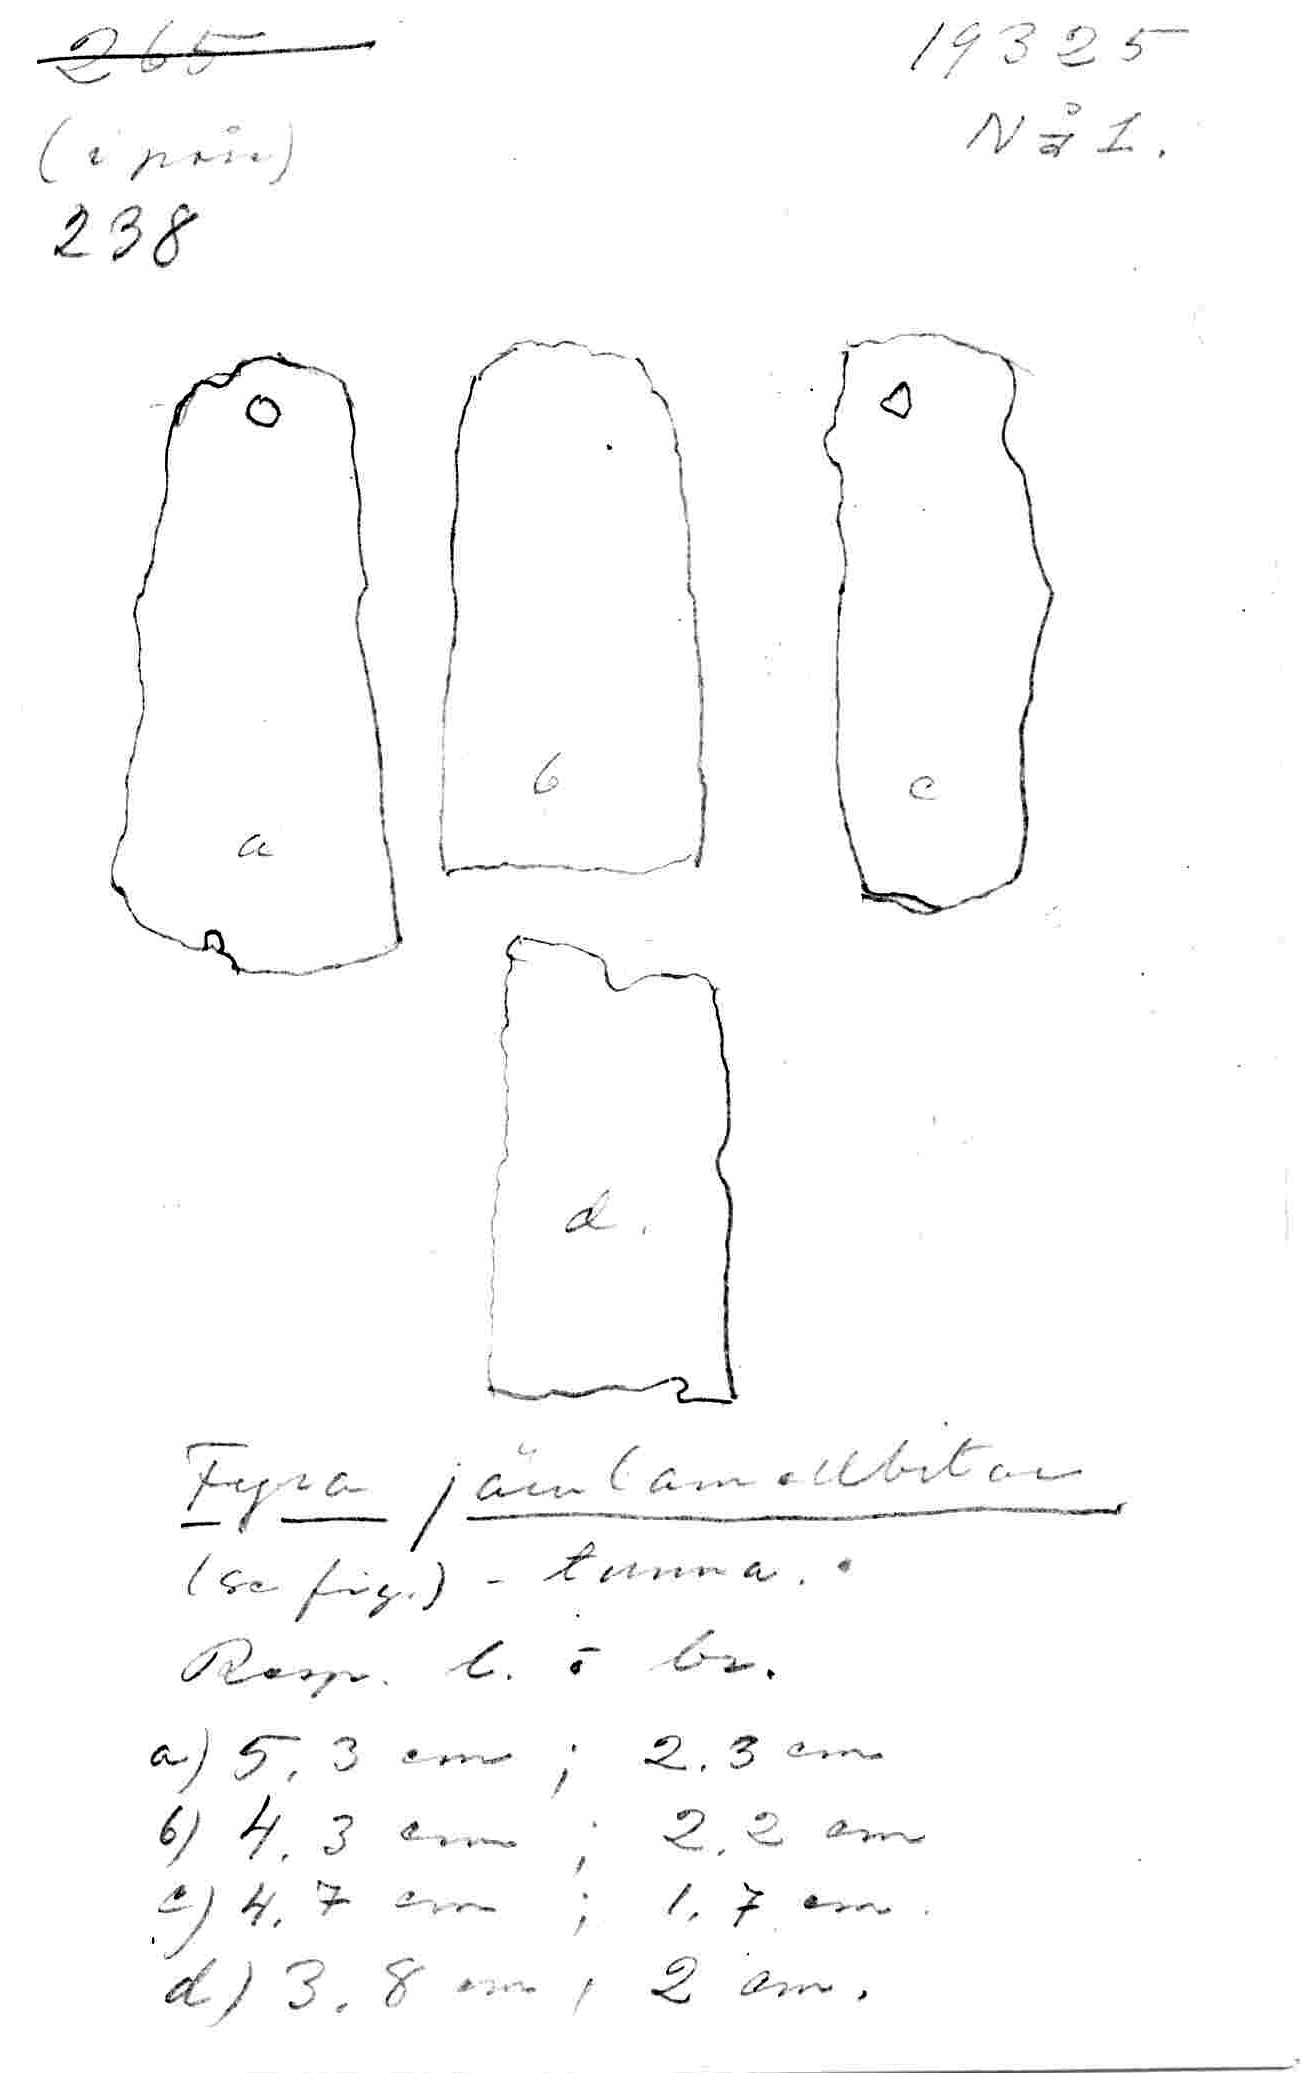 265
19325
Nå 1.
(i påse)
238
a
b
c
d.
Fyra järnlamellbitar
(se fig.) - tunna.
Resp. l. o br.
a) 5,3 cm ; 2.3 cm
b) 4,3 cm ; 2,2 cm
c) 4,7 cm ; 1,7 cm
d) 3,8 cm ; 2 cm.